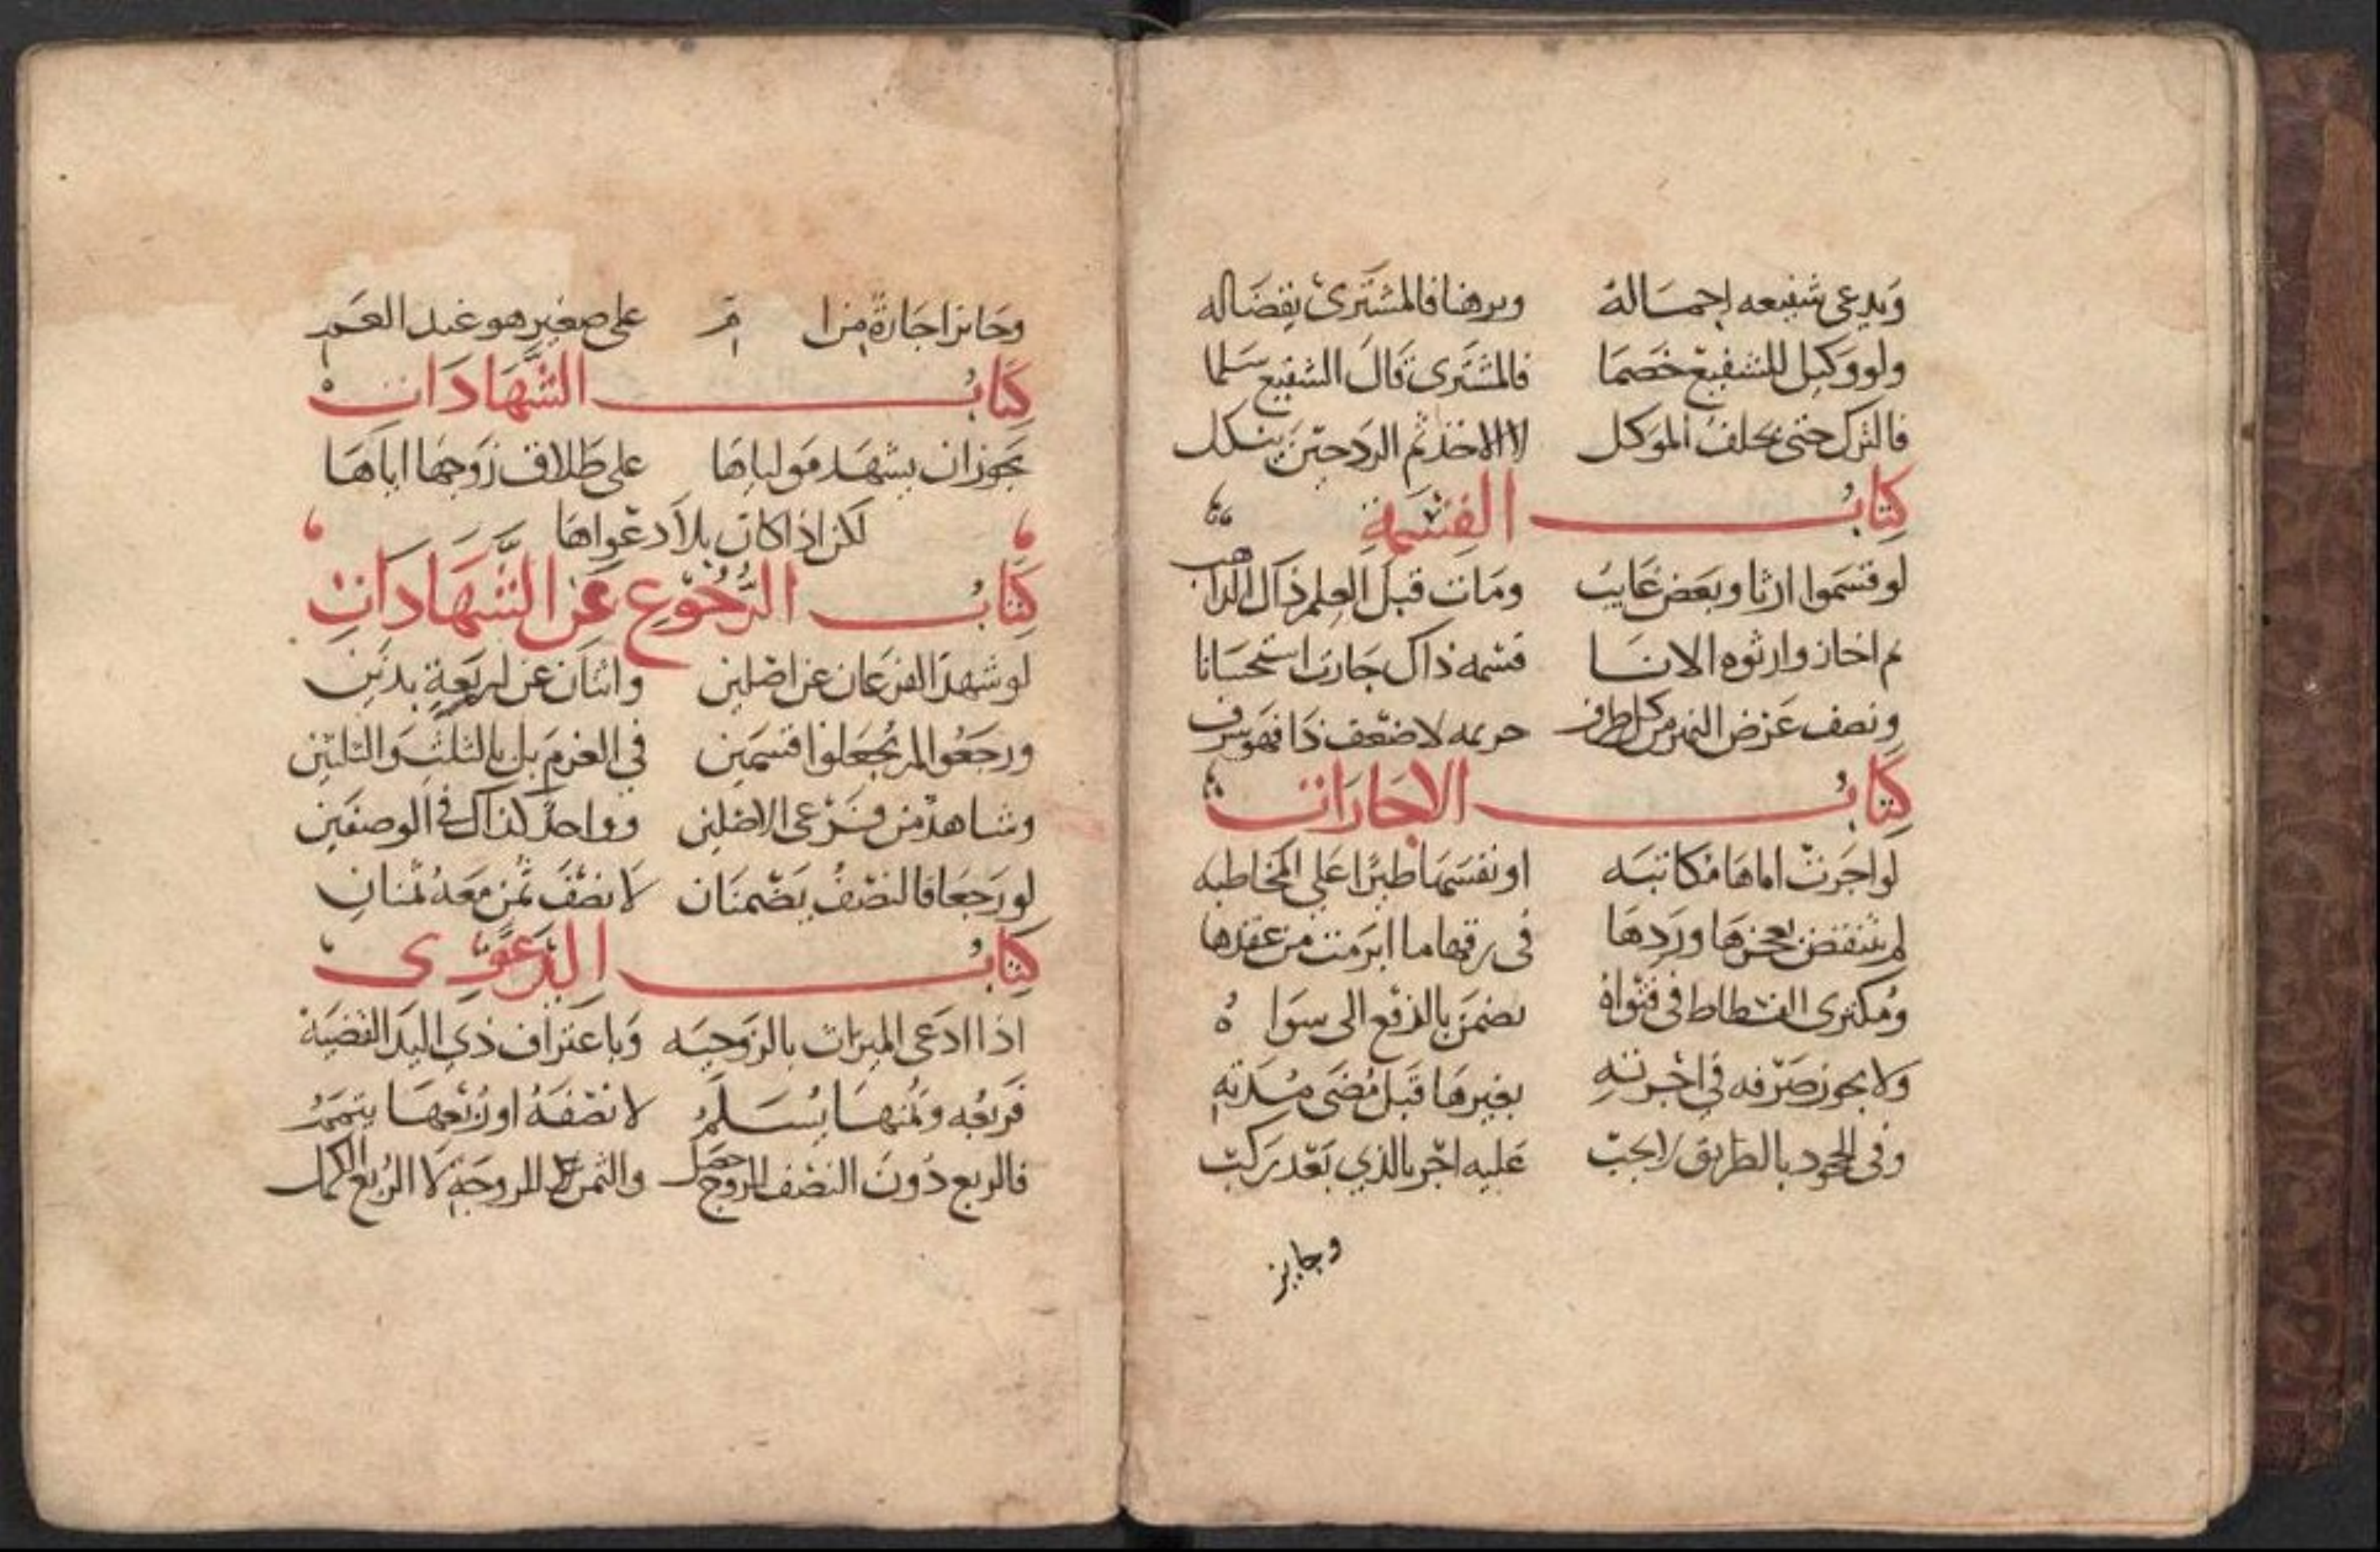 ويدعي شفيعه اجماله وبرهنا فالمشترى يقضا له
ولو وكيل للشفيع خصما فالمشترى قال الشفيع سلما
فالترك حتى يحلف الموكل لا الاخذ ثم الرد حين ينكل
كتاب القسمة
لو قسموا ارثا وبعض غايب ومات قبل العلم ذاك الذاهب
ثم اجاز وارثوه الانا قسمه ذاك جازت استحسانا
ونصف عرض النهر من كل طرف حريمه لا ضعف ذا فهو سرف
كتاب الاجارات
لو اجرت اماها مكاتبه او نفسها طيرا على المخاطبه
لم تنتقض بعجزها وردها في رقها ما ابرمت من عقدها
ومكترى الفسطاط في فتواه يضمن بالدفع الى سواه
ولا يجوز صرفه في اجرته بغيرها قبل مضى مدته
وفي الجحود بالطريق لا يجب عليه اجر بالذي بعد ركب
وجايز
وجايز اجارة من ام على صغير هو عند العم
كتاب الشهادات
يجوز ان يشهد مولياها على طلاق زوجها اياها
لكن اذا كان بلا دعواها
كتاب الرجوع عن الشهادات
لو شهد الفرعان عن اصلين واثنان عن اربعة بدين
ورجعوا لم يجعلوا قسمين في الغرم بل بالثلث والثلثين
وشاهد من فرعى الاصلين وواحد كذاك في الوصفين
لو رجعا فالنصف يضمنان لا نصف ثمن معه ثمنان
كتاب الدعوى
اذا ادعى الميراث بالزوجيه وباعتراف ذي اليد القضية
فربعه وثمنها يسلم لا نصفه او ربعها يتمم
فالربع دون النصف للزوج حصل والثمن للزوجة لا الربع الكمل